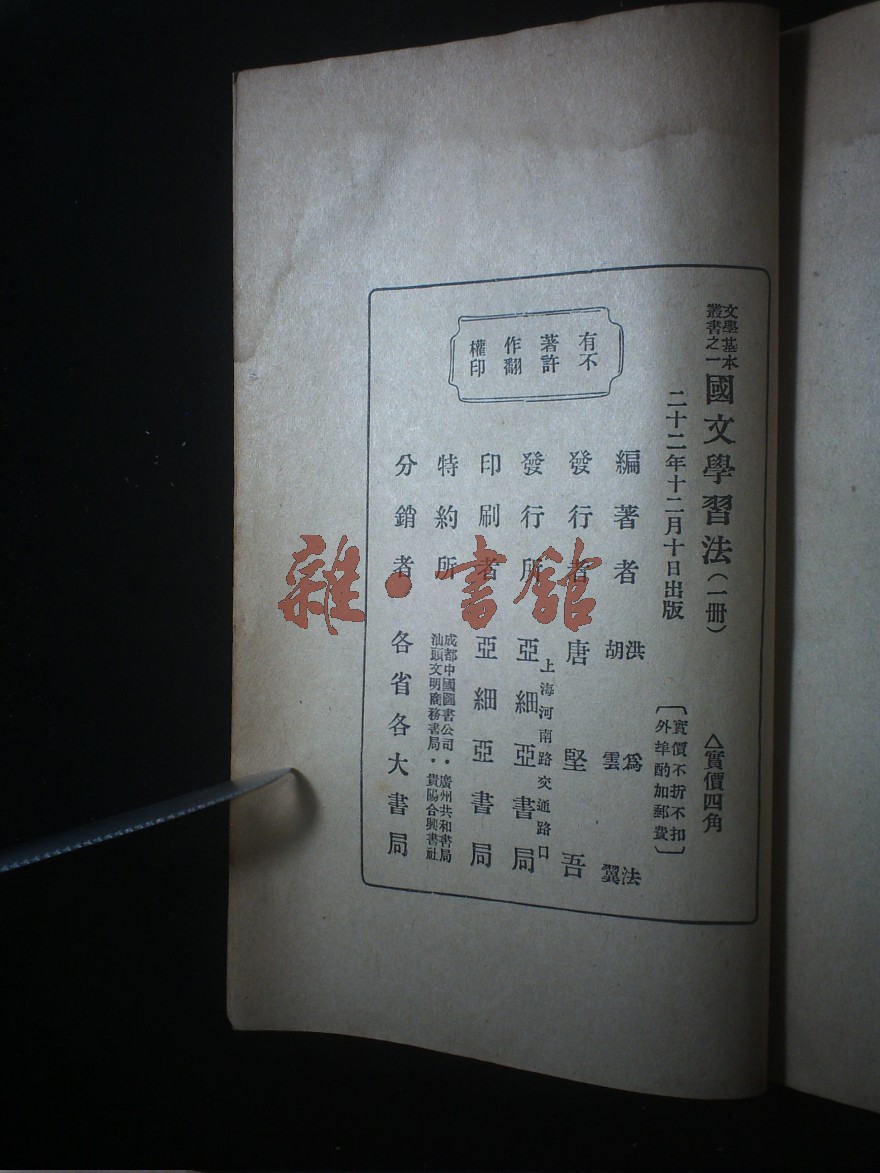 文學基本
叢書之一
國文學習法（一册）
△實價四角
二十二年十二月十日出版
〔實價不折不扣
外埠酌加郵費〕
編著者 洪爲法
胡雲翼
發行者 唐堅吾
上海河南路交通路口
發行所 亞細亞書局
印刷者 亞細亞書局
特約所 成都中國圖書公司・廣州共和書局
汕頭文明商務書局・貴陽合興書社
分銷者 各省各大書局
有著作權
不許翻印
雜・書館